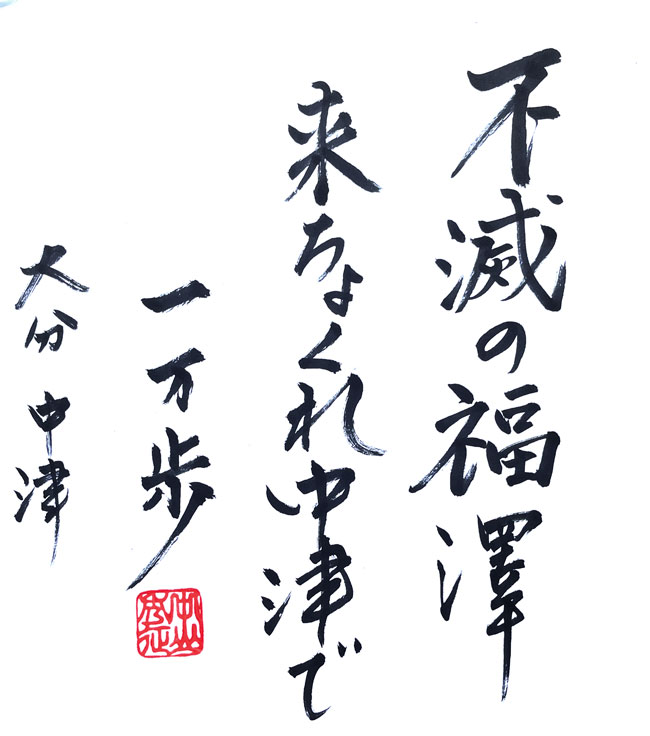 不滅の福澤
来ちょくれ中津で
一万歩
大分 中津